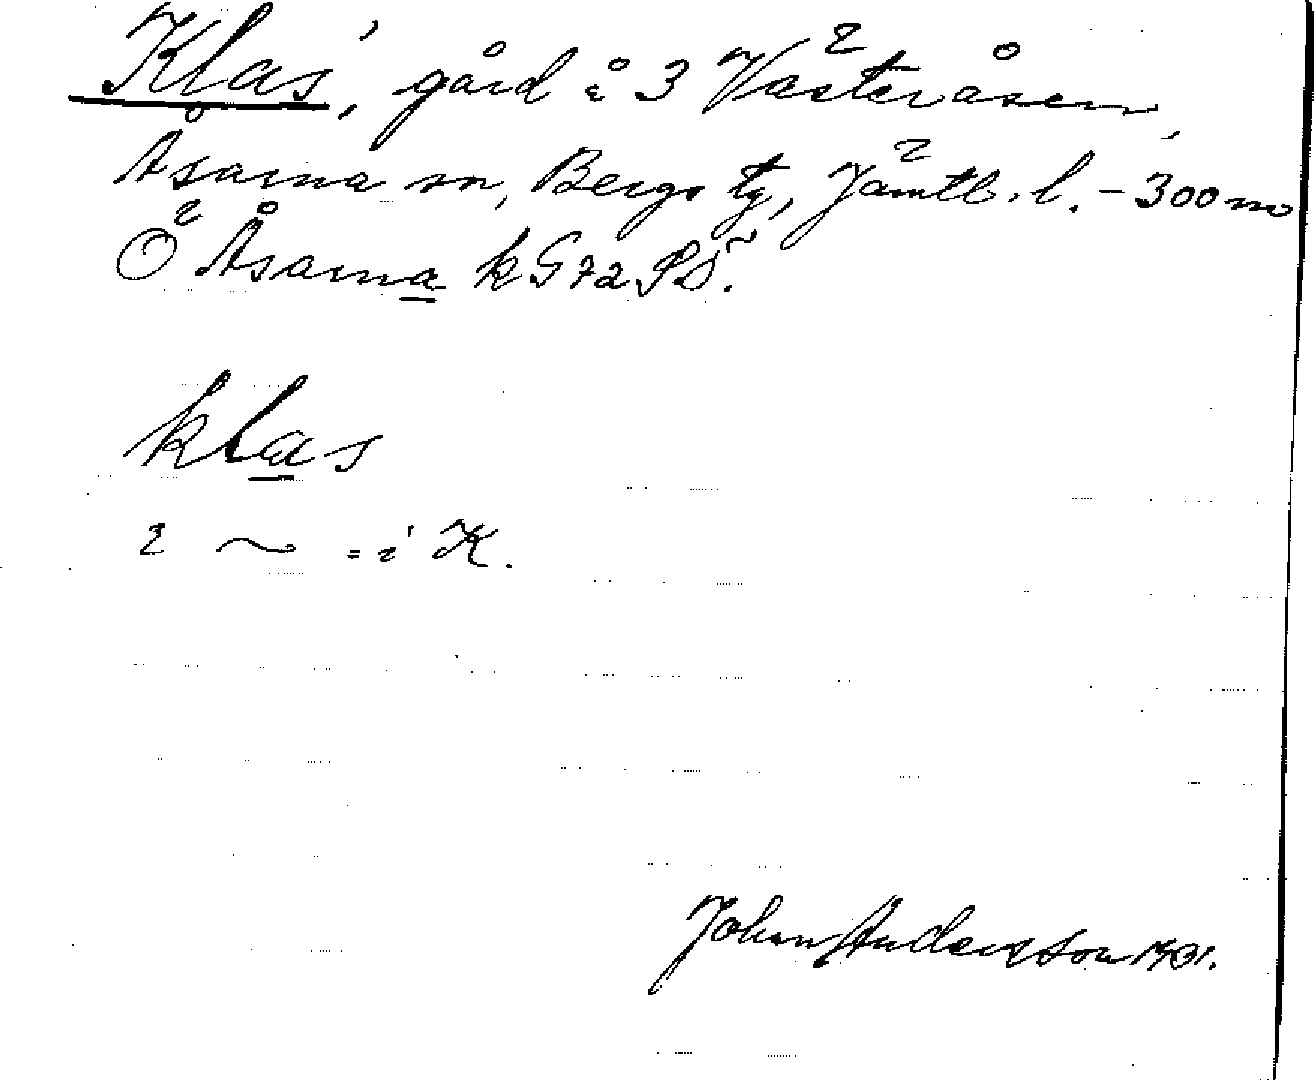 Klas', gård å 3 Västeråsen,
Åsarna sn, Bergs tg, Jämtl. l. - 300 m
Ö Åsarna k G72 SÖ.
klas
i ~ = i K.
Johan Andersson 1931.